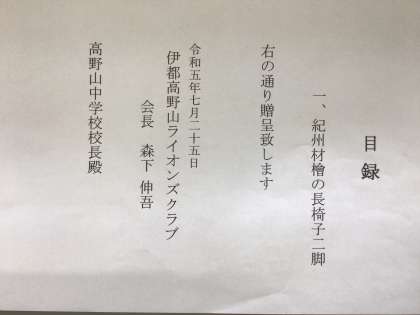 目録
一、紀州材檜の長椅子二脚
右の通り贈呈致します
令和五年七月二十五日
伊都高野山ライオンズクラブ
会長 森下 伸吾
高野山中学校校長殿